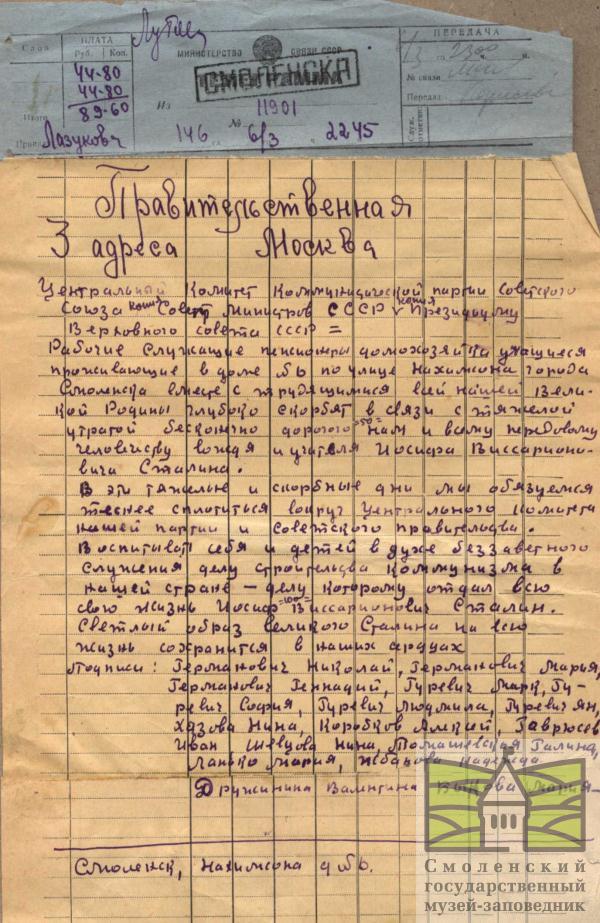 Лутшу
ПЛАТА
Слов
Руб.
Коп.
44-80
44-80
89-60
Итого
Лазукович
МИНИСТЕРСТВО СВЯЗИ СССР
СМОЛЕНСКА
Из
№
11901
146
6/3
2245
ПЕРЕДАЧА
6/3 2300
№ связи
Передал
Правительственная
3 адреса Москва
Центральный Комитет Коммунистической партии Советского
Союза копия Совет Министров СССР копия Президиуму
Верховного совета СССР =
Рабочие служащие пенсионеры домохозяйки учащиеся
проживающие в доме 6ь по улице Нахимсона города
Смоленска вместе с трудящимися всей нашей Вели-
кой Родины глубоко скорбят в связи с тяжелой
утратой бесконечно дорогого =50= нам и всему передовому
человечеству вождя и учителя Иосифа Виссарионо-
вича Сталина.
В эти тяжелые и скорбные дни мы обязуемся
теснее сплотиться вокруг Центрального Комитета
нашей партии и Советского правительства.
Воспитывать себя и детей в духе беззаветного
служения делу строительства Коммунизма в
нашей стране — делу которому отдал всю
свою жизнь Иосиф =100= Виссарионович Сталин.
Светлый образ великого Сталина на всю
жизнь сохранится в наших сердцах
Подписи: Германович Николай, Германович Мария,
Германович Геннадий, Гуревич Марк, Гу-
ревич София, Гуревич Людмила, Гуревич Ян,
Хазова Нина, Коробков Алексий, Гаврюсев
Иван Шевцова Нина, Томашевская Галина,
Ланько Мария, Жбанова Надежда
Дружинина Валентина Быкова Мария —
Смоленск, Нахимсона д 6ь.
Смоленский
государственный
музей-заповедник